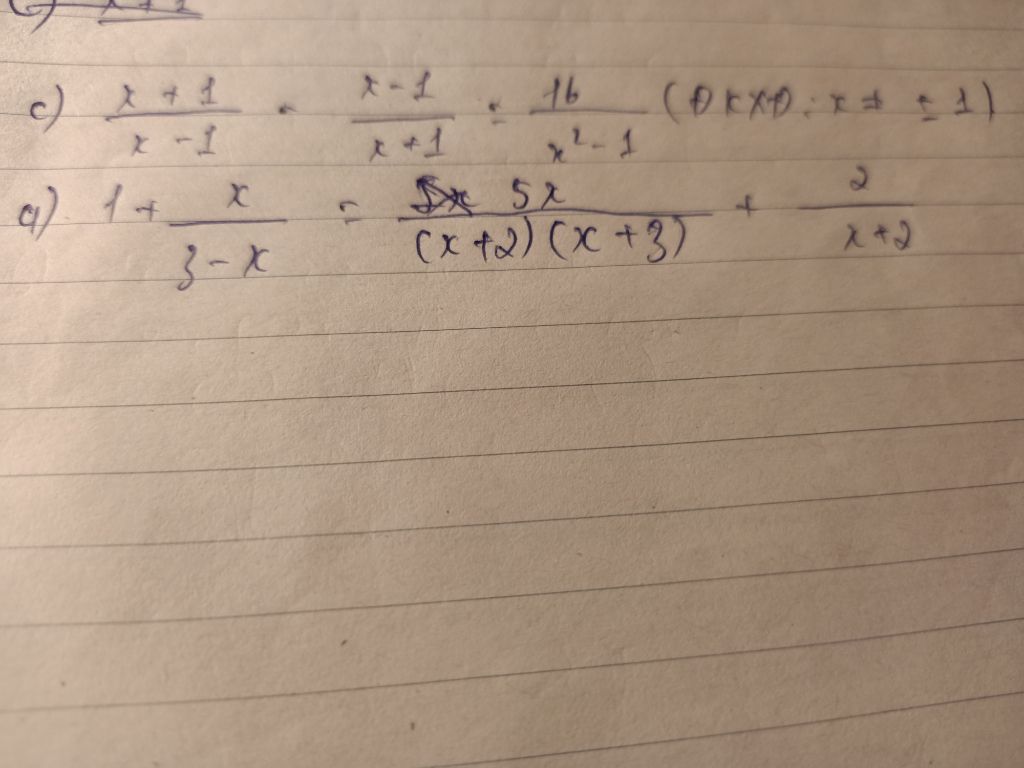 c) \frac{x+1}{x-1} - \frac{x-1}{x+1} = \frac{16}{x^2-1} (ĐKXĐ: x ≠ ±1)
a) 1 + \frac{x}{3-x} = \frac{5x}{(x+2)(x+3)} + \frac{2}{x+2}